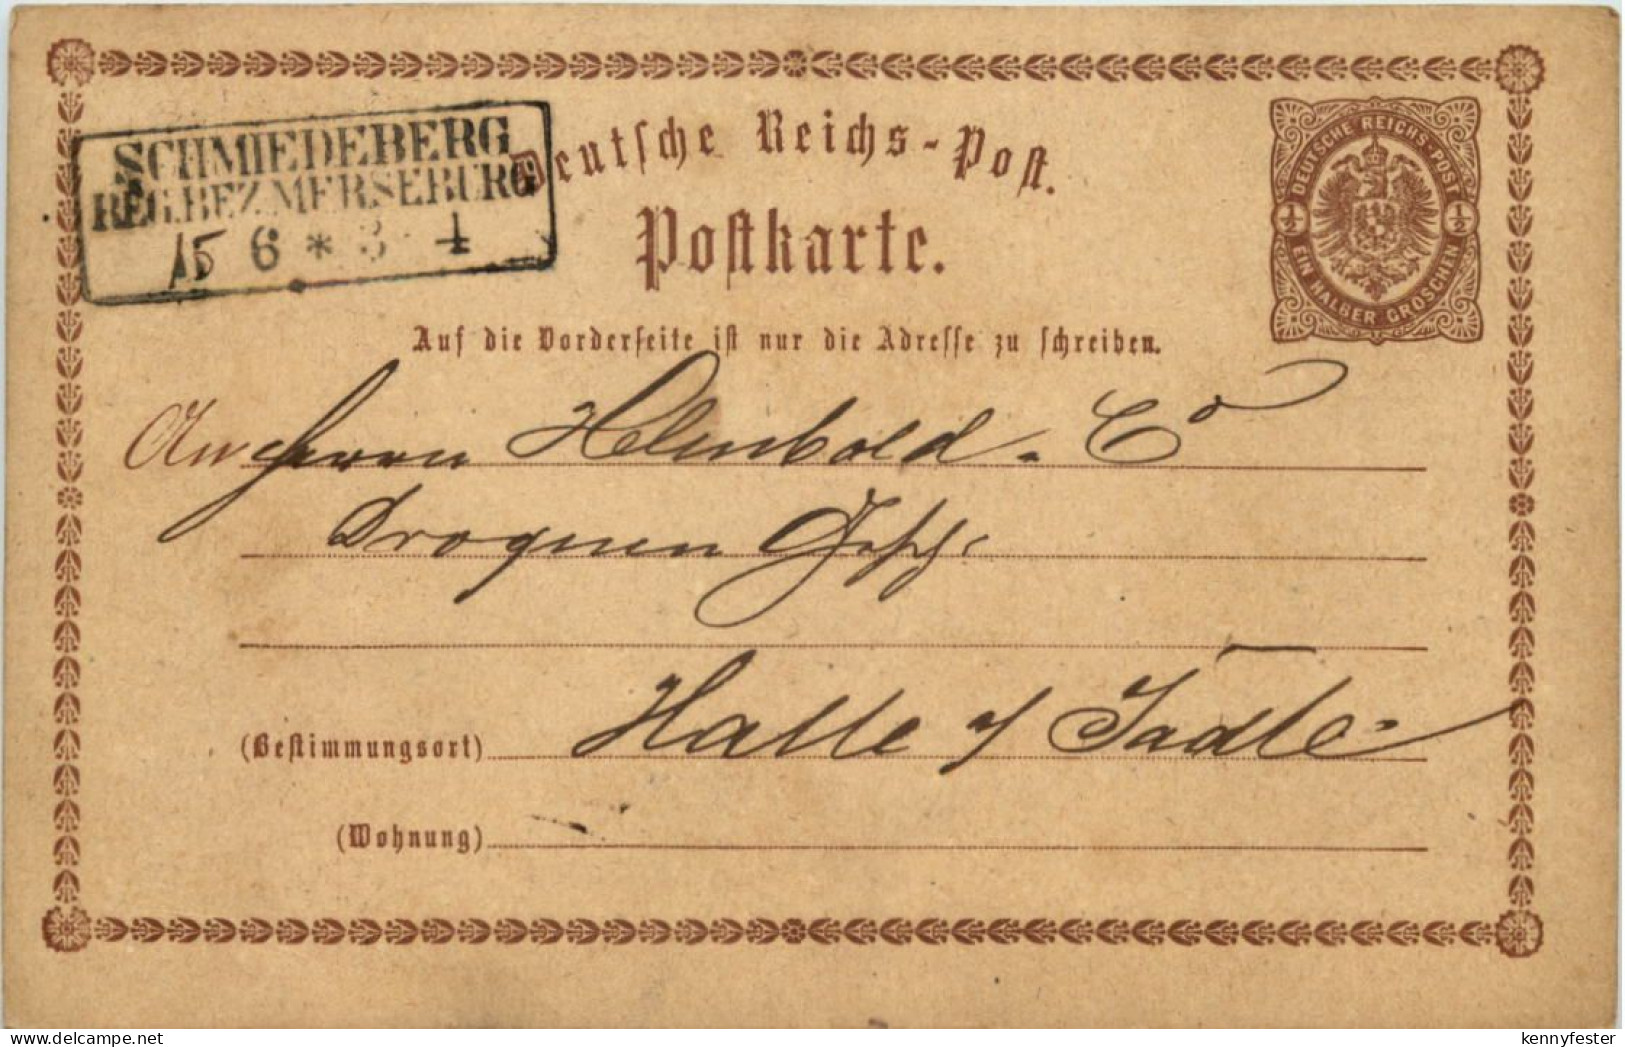 SCHMIEDEBERG
REG.BEZ.MERSEBURG
15 6 * 3-4
Deutsche Reichs-Post.
Postkarte.
DEUTSCHE REICHS-POST
1/2 1/2
EIN HALBER GROSCHEN
Auf die Vorderseite ist nur die Adresse zu schreiben.
An Herrn Helmbold & Co
Droguen Gesch.
(Bestimmungsort) Halle a/ Saale
(Wohnung)
www.delcampe.net
kennyfester